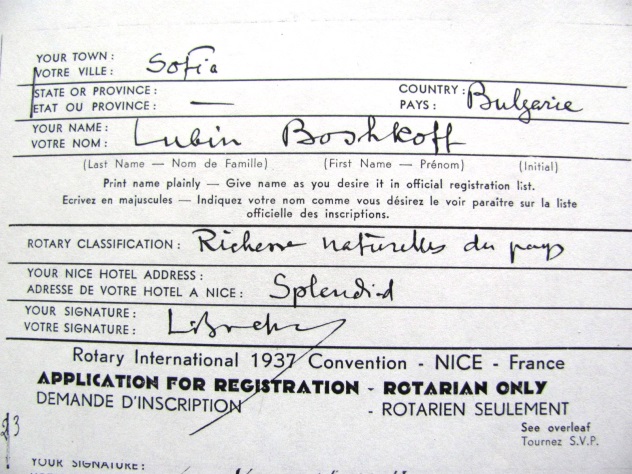 YOUR TOWN:
VOTRE VILLE: Sofia
STATE OR PROVINCE:
ETAT OU PROVINCE: —
COUNTRY:
PAYS: Bulgarie
YOUR NAME:
VOTRE NOM: Lubin Boshkoff
(Last Name — Nom de Famille) (First Name — Prénom) (Initial)
Print name plainly — Give name as you desire it in official registration list.
Ecrivez en majuscules — Indiquez votre nom comme vous désirez le voir paraître sur la liste
officielle des inscriptions.
ROTARY CLASSIFICATION: Richesse naturelles du pays
YOUR NICE HOTEL ADDRESS:
ADRESSE DE VOTRE HOTEL A NICE: Splendid
YOUR SIGNATURE:
VOTRE SIGNATURE:
Rotary International 1937 Convention - NICE - France
APPLICATION FOR REGISTRATION - ROTARIAN ONLY
DEMANDE D'INSCRIPTION - ROTARIEN SEULEMENT
See overleaf
Tournez S.V.P.
YOUR SIGNATURE: